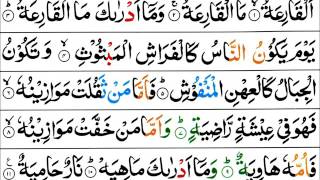 اَلْقَارِعَةُ ۙ ١ مَا الْقَارِعَةُ ۚ ٢ وَمَاۤ اَدْرٰىكَ مَا الْقَارِعَةُ ؕ ٣
يَوْمَ يَكُوْنُ النَّاسُ كَالْفَرَاشِ الْمَبْثُوْثِ ۙ ٤ وَتَكُوْنُ
الْجِبَالُ كَالْعِهْنِ الْمَنْفُوْشِ ؕ ٥ فَاَمَّا مَنْ ثَقُلَتْ مَوَازِيْنُهٗ ۙ ٦
فَهُوَ فِيْ عِيْشَةٍ رَّاضِيَةٍ ؕ ٧ وَاَمَّا مَنْ خَفَّتْ مَوَازِيْنُهٗ ۙ ٨
فَاُمُّهٗ هَاوِيَةٌ ؕ ٩ وَمَاۤ اَدْرٰىكَ مَاهِيَهْ ؕ ١٠ نَارٌ حَامِيَةٌ ١١